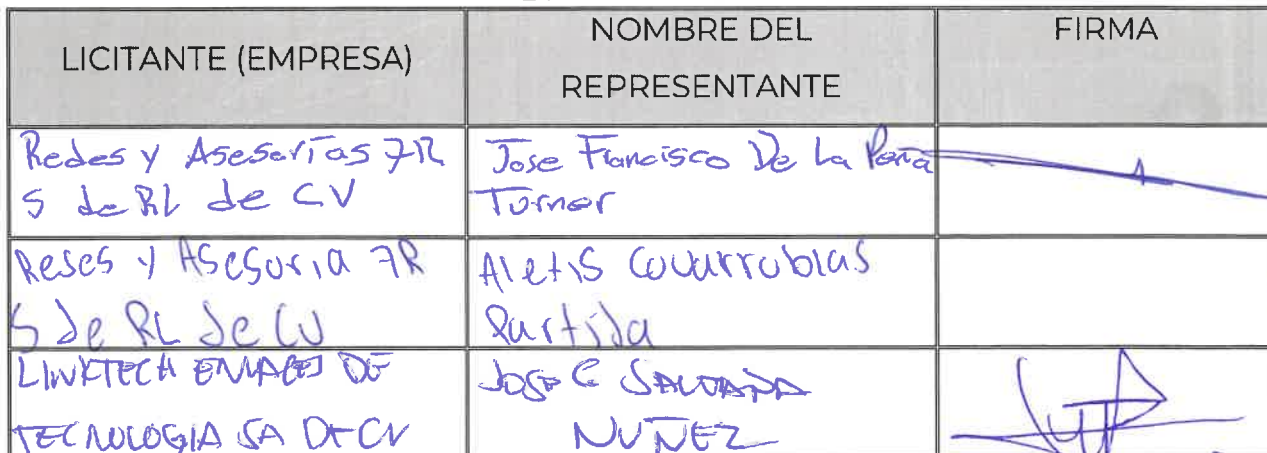 LICITANTE (EMPRESA)
NOMBRE DEL
REPRESENTANTE
FIRMA
Redes y Asesorías 7R
S de RL de CV
Jose Francisco De La Peña
Turner
Reses y Asesoria 7R
S de RL de CV
Aletis Covarrubias
Partida
LINKTECH ENLACES DE
TECNOLOGIA SA DE CV
JOSE C
NUÑEZ